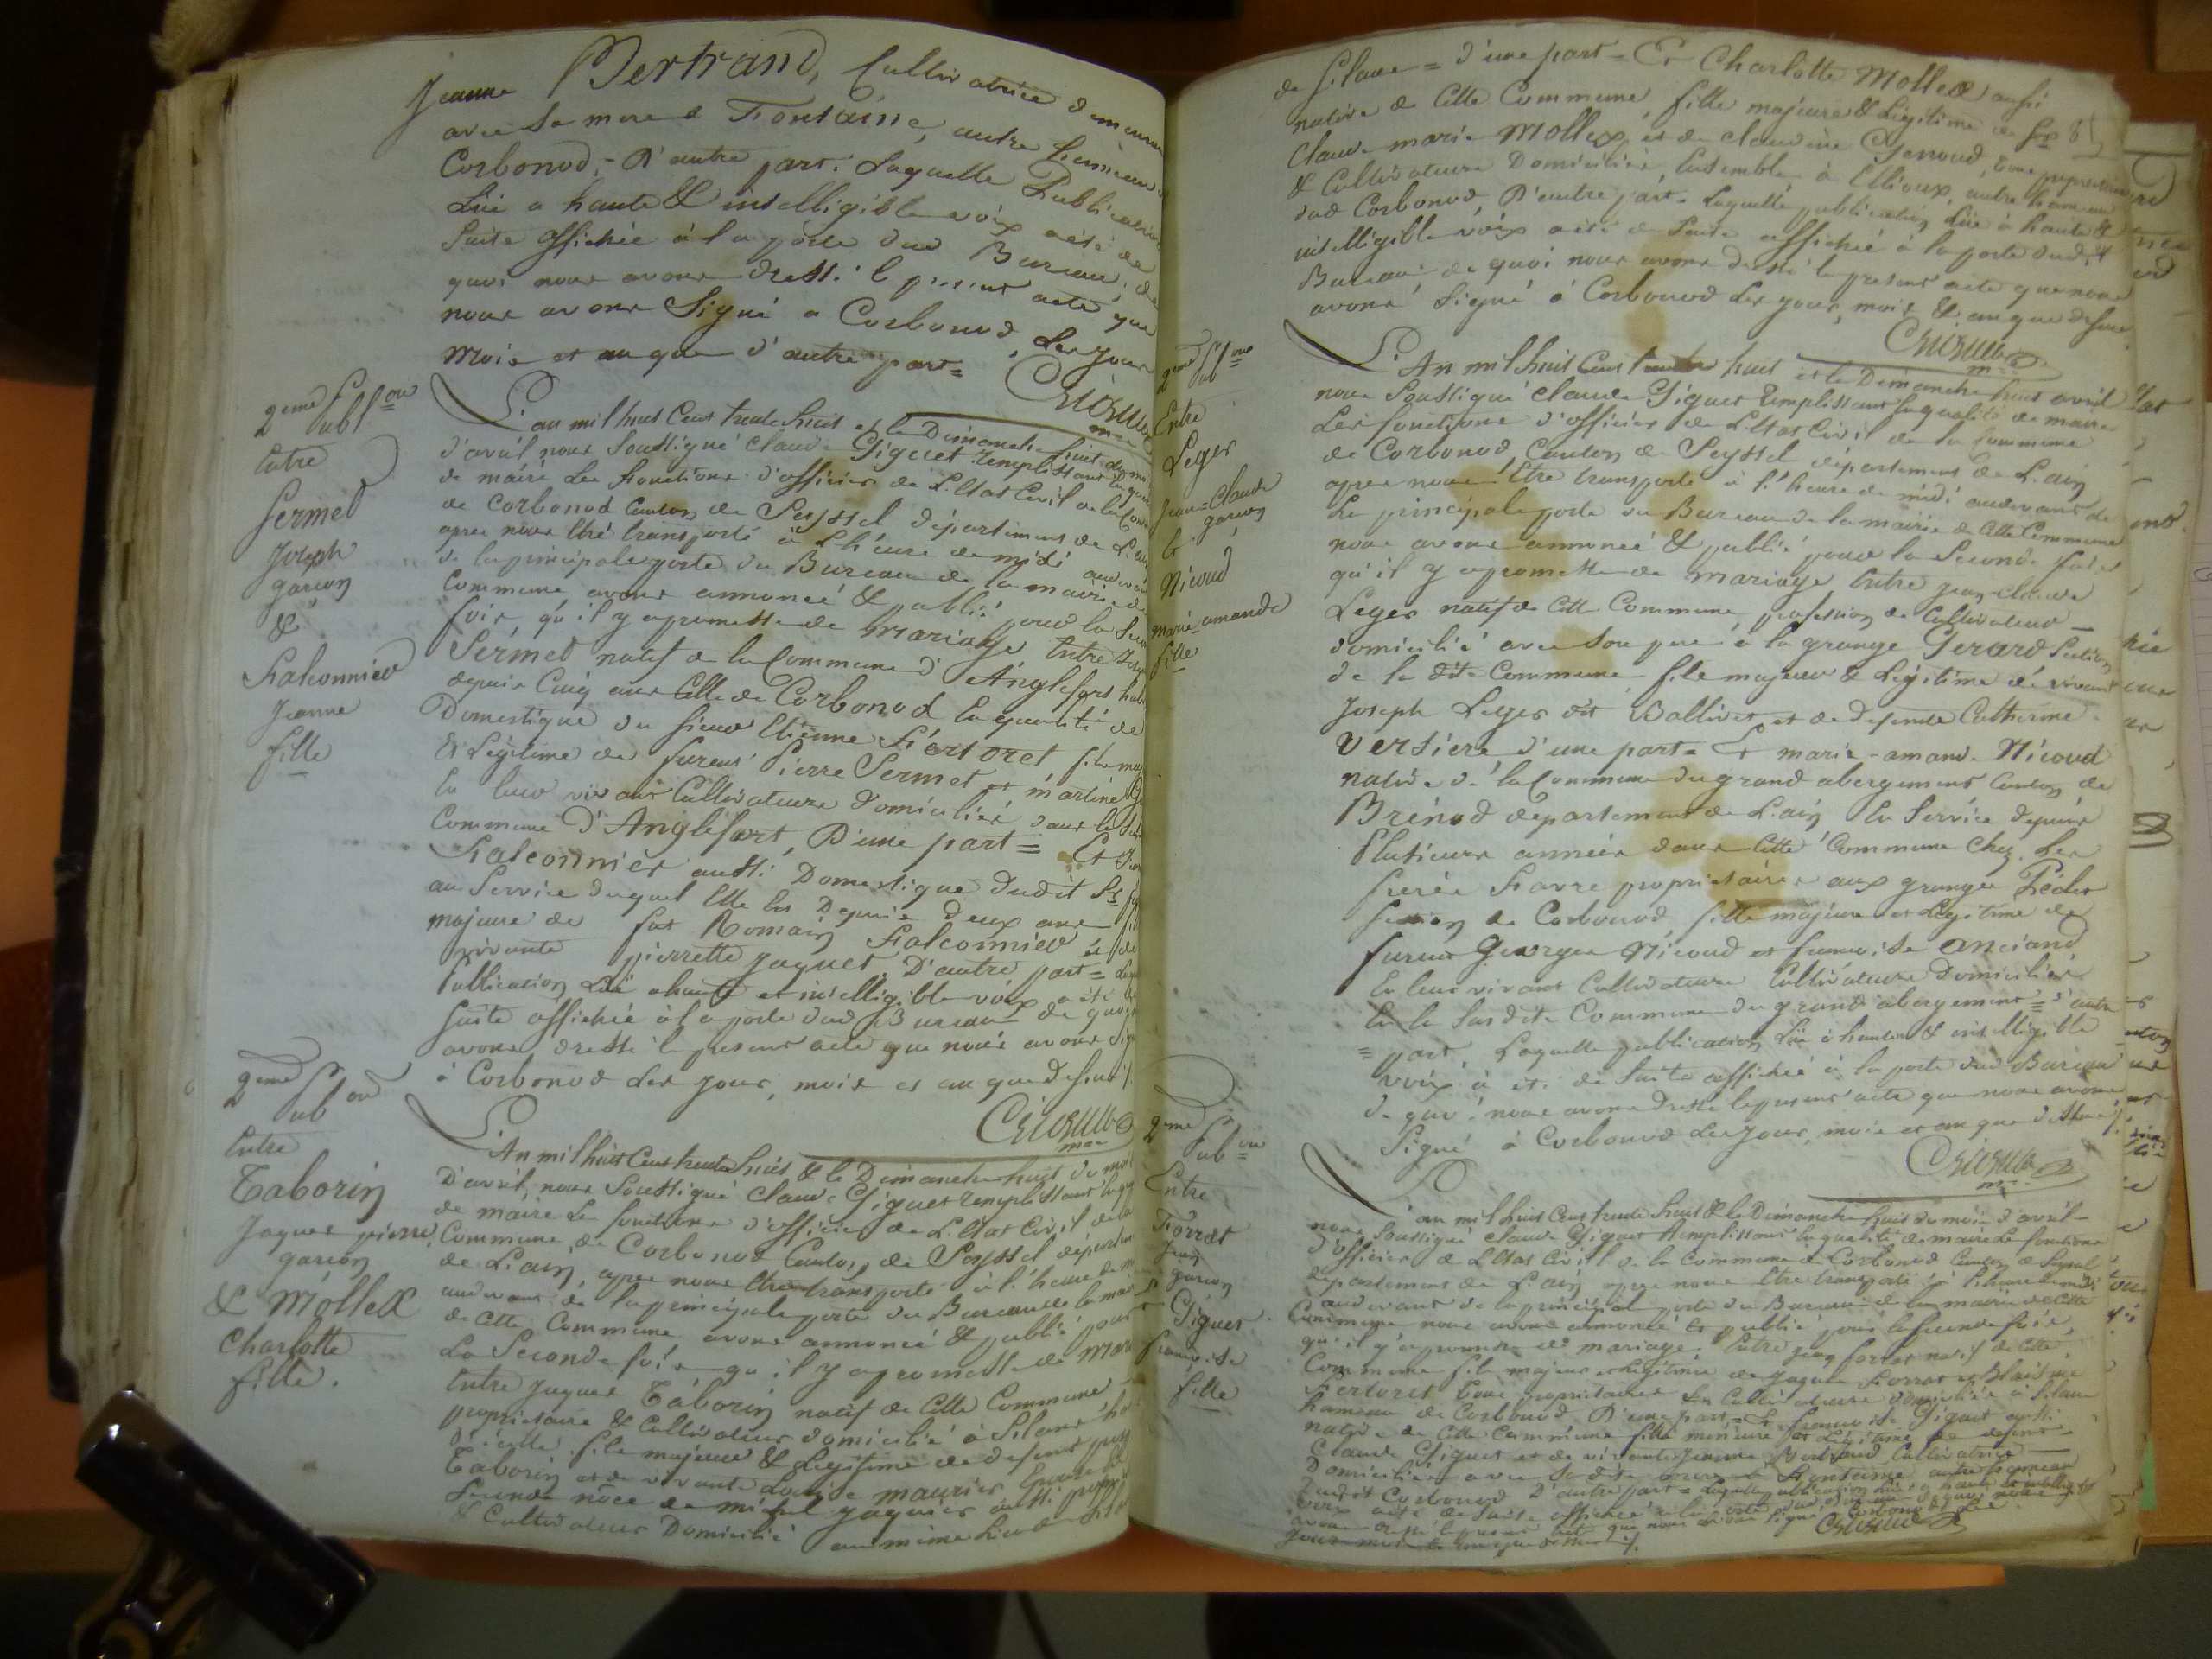 Jeanne Bertrand, Cultivatrice demeurant
avec sa mere à Fontaine, autre hameau
Corbonod, - D'autre part. Laquelle Publication
Lüe a haute & intelligible voix a été de
suite affichée à la porte dud Bureau, de
quoi nous avons dressé le présent acte que
nous avons signé a Corbonod, les jour
mois et an que d'autre part=
2eme Publ^on
Entre
Sermet
Joseph
garçon
&
Falconnier
Jeanne
fille
L'an mil huit cent trente huit et le Dimanche huit du mois
d'avril nous soussigné Claude Giguet remplissant la qualité
de maire Les fonctions d'officier de L'Etat Civil de la Com
de Corbonod Canton de Seyssel département de L'ain
apres nous être transporté à L'heure de midi audevant
de la principale porte du Bureau de la mairie de
Commune avons annoncé & publié pour la Seco
fois, qu'il y a promesse de mariage Entre Jose
Sermet natif de la Commune d'Anglefort hab
depuis Cinq ans Celle de Corbonod En qualité de
Domestique du sieur Etienne Fertoret fils maj
& Légitime de fureut Pierre Sermet et martine
En leur vivant Cultivateurs domiciliés dans la
Commune D'Anglefort, D'une part = Et Jea
Falconnier aussi Domestique dudit Sr
au Service duquel Elle Est Depuis deux ans
majeure de fut Romain Falconnier et de
vivante pierrette Jaquet, D'autre part= Laq
Publication Lüe a haute et intelligible voix a été
suite affichée à la porte dud Bureau de quoi
avons dressé le present acte que nous avons sig
à Corbonod Les jour, mois et an que dessus
2eme Pub^on
Entre
Taborin
Jaques pierre
garçon
& Mollex
Charlotte
fille.
L'An mil huit Cent trente huit & le Dimanche huit du moi
D'avril, nous soussigné Claude Giguet remplissant la q
de maire Les fonctions d'officier de L'Etat Civil de la
Commune, de Corbonod Canton, de Seyssel départem
de L'ain, apres nous être transporté à l'heure de m
audevant de la principale porte du Bureau de la mai
de cette Commune avons annoncé & publié pour
La Seconde fois, qu'il y a promesse de mari
Entre Jaques Taborin natif de cette Commune
propriétaire & Cultivateur domicilié à Silans ha
d'icelle, fils majeur & Legitime de defunt
Taborin et de vivante Louise maurier Epouse
Seconde noce de michel Jaquier aussi propri
& Cultivateurs Domicilié au même lieu de Sila
de Silans = d'une part = Et Charlotte Mollex aussi
native de Cette Commune, fille majeure & Légitime de Sr
85
Claude marie Mollex, et de Claudine Genoud, tous propriétaires
& Cultivateurs Domiciliés, Ensemble à Ellioux, autre hameau
dud Corbonod, D'autre part. Laquelle publication Lüe à haute &
intelligible voix a été de Suite affichée à la porte dudit
Bureau de quoi nous avons dressé le présent acte que nous
avons signé à Corbonod les jour, mois & an que dessus.
2eme Pub^on
Entre
Leger
Jean=Claude
garçon
&
Nicoud
Marie-amande
fille
L'An mil huit Cent trente huit et le Dimanche huit avril
nous Soussigné Claude Giguet Remplissant la qualité de maire
Les fonctions d'officier de L'Etat Civil de la Commune
de Corbonod, Canton de Seyssel département de L'ain
apres nous être transporté à l'heure de midi audevant de
La principale porte du Bureau de la mairie de Cette Commune
nous avons annoncé & publié pour la Seconde fois
qu'il y a promesse de mariage Entre Jean-Claude
Leger natif de Cette Commune, profession de Cultivateur
domicilié avec Son pere à la grange Gerard Section
de la dite Commune fils majeur & Légitime de vivant
Joseph Leger dit Bollivet, et de defunte Catherine
Versiere d'une part = Et marie-amande Nicoud
native de la Commune du grand abergement Canton de
Brénod departement de L'ain En Service depuis
Plusieurs années dans Cette Commune Chez Les
freres Favre propriétaires aux granges
Section de Corbonod, fille majeure et Légitime de
fureut George Nicoud et francoise Anciand
En leur vivant Cultivateurs Cultivateurs Domiciliés
En la Susdite Commune du grand abergement = d'autre
= part. Laquelle publication Lüe à haute & intelligible
voix à été de suite affichée à la porte dud Bureau
de quoi nous avons dressé le present acte que nous avons
Signé à Corbonod Les jour, mois et an que dessus
2eme Pub^on
Entre
Forrat
Jean
garçon
&
Giguet
francoise
fille
L'an mil huit Cent trente huit & le Dimanche huit du mois d'avril
nous soussigné Claude Giguet Remplissant la qualité de maire Les fonctions
d'officier de L'Etat Civil de la Commune de Corbonod Canton de Seyssel
departement de L'ain apres nous être transporté à l'heure de midi
audevant de la principal porte du Bureau de la mairie de Cette
Commune nous avons annoncé & publié pour la seconde fois,
qu'il y a promesse de mariage Entre Jean forrat natif de Cette
Commune fils majeur et Légitime de Jaques Forrat et Blaisine
Fertoret tous propriétaires En Cultivateurs domiciliés à Silans
hameau de Corbonod D'une part = Et francoise Giguet aussi
native de Cette Commune fille mineure et Légitime de defunt
Claude Giguet et de vivante Jeanne Bertrand Cultivatrice
Domiciliée avec Sa dite mere à Fontaine autre hameau
dudit Corbonod D'autre part = Laquelle publication Lüe a haute & intelligible
voix a été de suite affichée à la porte dud Bureau de quoi nous
avons dressé le present acte que nous avons signé à Corbonod les
jour mois & an que dessus